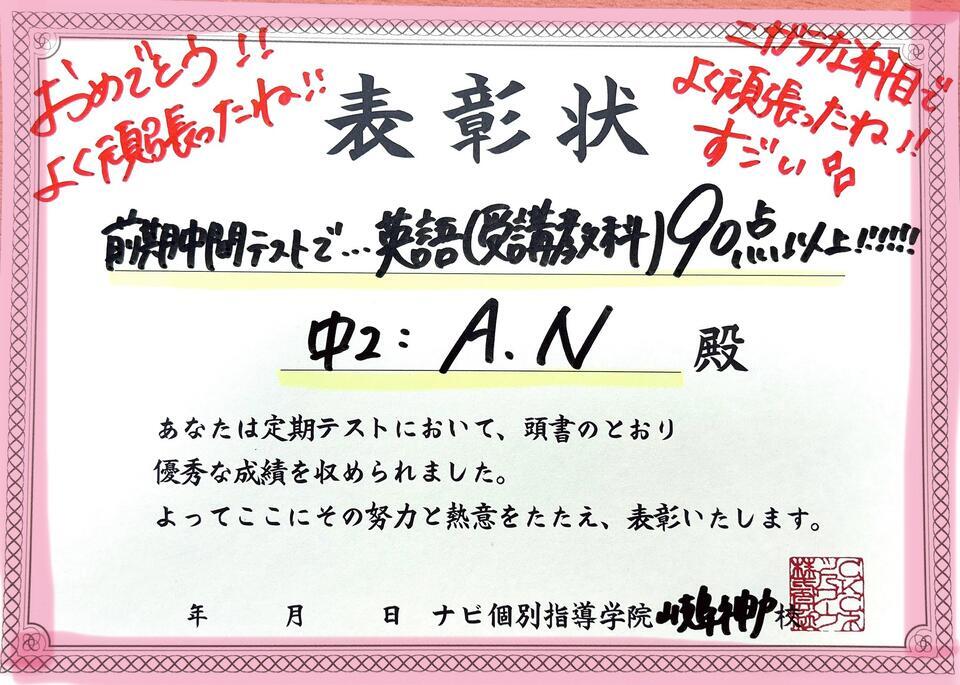 おめでとう!!
よく頑張ったね!!
にがてな科目で
よく頑張ったね!!
すごい
表彰状
前期中間テストで…英語(受講教科)90点以上!!!!!
中2:A.N 殿
あなたは定期テストにおいて、頭書のとおり
優秀な成績を収められました。
よってここにその努力と熱意をたたえ、表彰いたします。
年 月 日 ナビ個別指導学院岐阜神戸校